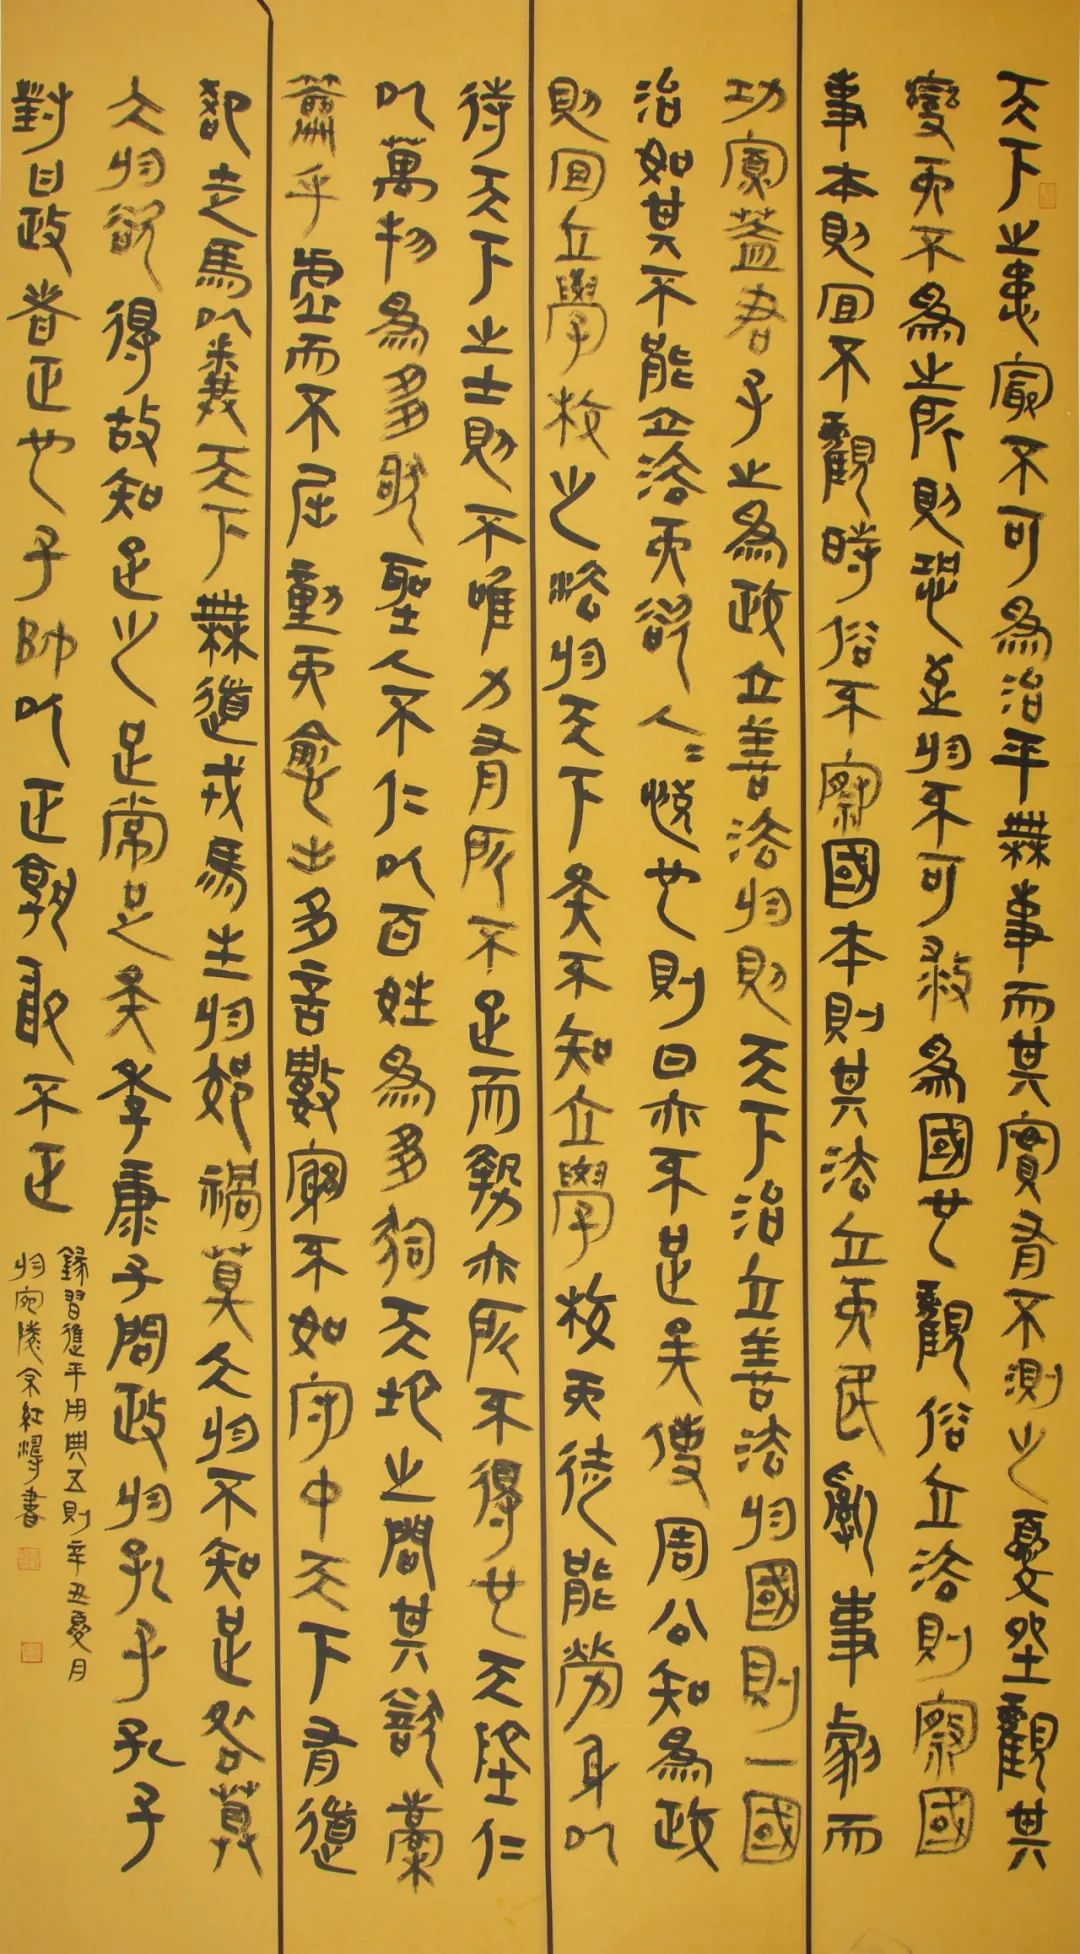 天下之患最不可為治平無事而其實有不測之憂坐觀其
變而不為之所則恐至於不可救為國也觀俗立法則察國
事本則宜不觀時俗不察國本則其法立而民亂事劇而
功寡蓋君子之為政立善法於則天下治立善法於國則一國
治如其不能立法而欲人人悅也則日亦不足矣使周公知為政
則宜立學校之法於天下矣不知立學校而徒能勞身以
待天下之士則不唯力有所不足而勢亦所不得也天地仁
以萬物為芻狗聖人不仁以百姓為芻狗天地之間其猶橐
籥乎虛而不屈動而愈出多言數窮不如守中天下有道
卻走馬以糞天下無道戎馬生於郊禍莫大於不知足咎莫
大於欲得故知足之足常足矣季康子問政於孔子孔子
對曰政者正也子帥以正孰敢不正
錄習近平用典五則辛丑夏月
於宛陵余紅博書